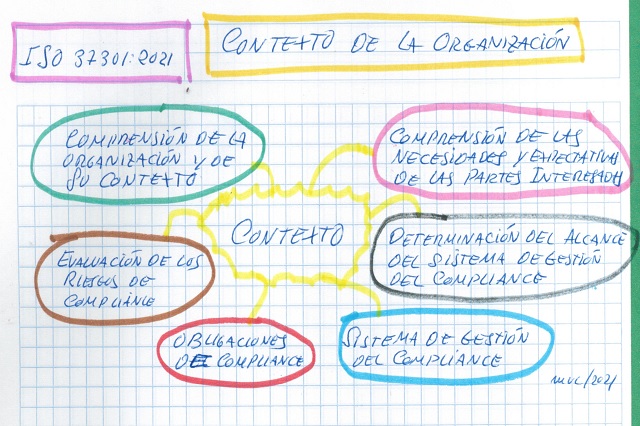 ISO 37301:2021
CONTEXTO DE LA ORGANIZACIÓN
COMPRENSIÓN DE LA
ORGANIZACIÓN Y DE
SU CONTEXTO
COMPRENSIÓN DE LAS
NECESIDADES Y EXPECTATIVAS
DE LAS PARTES INTERESADAS
CONTEXTO
EVALUACIÓN DE LOS
RIESGOS DE
COMPLIANCE
DETERMINACIÓN DEL ALCANCE
DEL SISTEMA DE GESTIÓN
DEL COMPLIANCE
OBLIGACIONES
DE COMPLIANCE
SISTEMA DE GESTIÓN
DEL COMPLIANCE
/2021